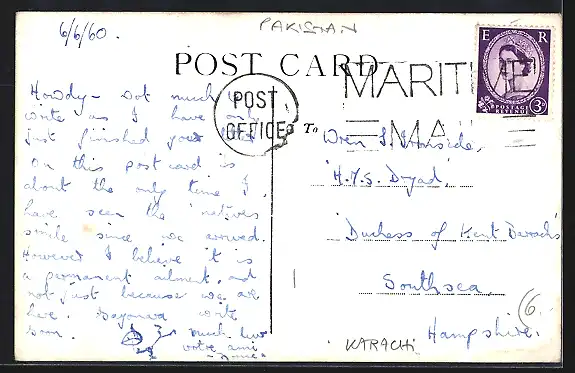 6/6/60.
PAKISTAN
E R
POSTAGE
REVENUE
3D
POST CARD
MARITI
MA
POST
OFFICE
To
Howdy - not much
write as I have only
just finished your
on this post card is
about the only time I
have seen the natives
smile since we arrived.
However I believe it is
a permanent ailment, and
not just because we are
here. Sayonara write
soon. much luv
votre ami
Wren S.
H.M.S. Dryad,
Duchess of Kent Barracks
Southsea,
Hampshire.
6
KARACHI